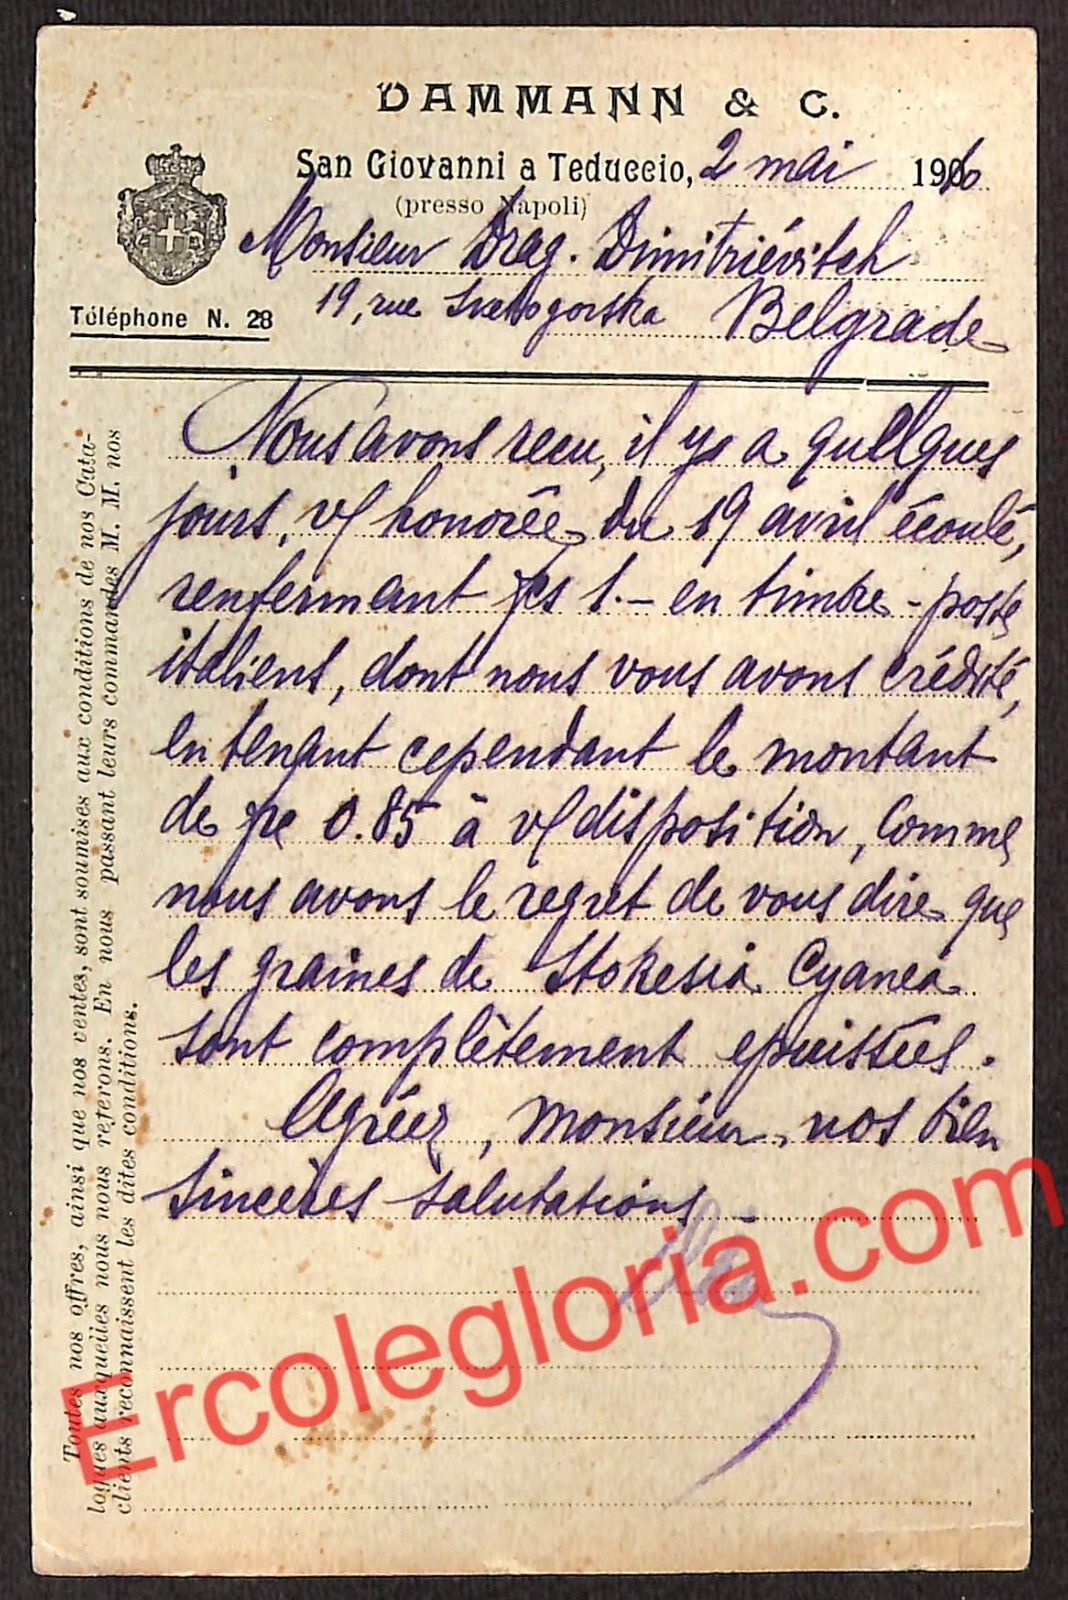 DAMMANN & C.
San Giovanni a Teduccio, 2 mai 1910
(presso Napoli)
Monsieur Drag. Dimitriévitch
19, rue Svetogorska Belgrade
Téléphone N. 28
Nous avons recu, il y a quelques
jours, v/ honorée du 19 avril écoulé,
renfermant fcs 1.- en timbre-poste
italiens, dont nous vous avons crédité,
en tenant cependant le montant
de fc 0.85 à v/ disposition, comme
nous avons le regret de vous dire que
les graines de Stokesia Cyanea
sont complètement epuisées.
Agréez, Monsieur, nos bien
sincères salutations
Toutes nos offres, ainsi que nos ventes, sont soumises aux conditions de nos Cata-
logues auxquelles nous nous réferons. En nous passant leurs commandes M. M. nos
clients reconnaissent les dites conditions.
Ercolegloria.com